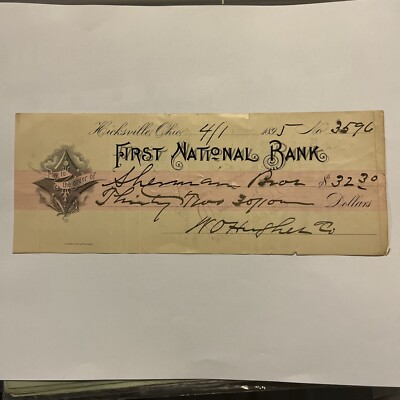 Hicksville, Ohio, 4/1 1895 No 3596
FIRST NATIONAL BANK
Pay to
to the order of
Sherman Bros $ 32.30
Thirty Two 30/100 Dollars
W O Hughes Co